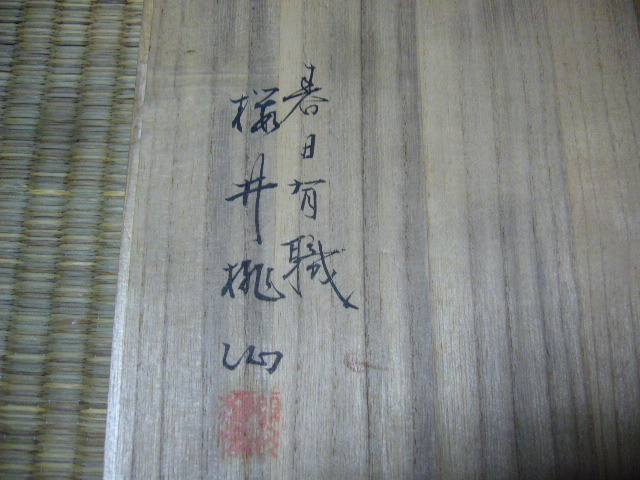 春日有職
櫻井桃山